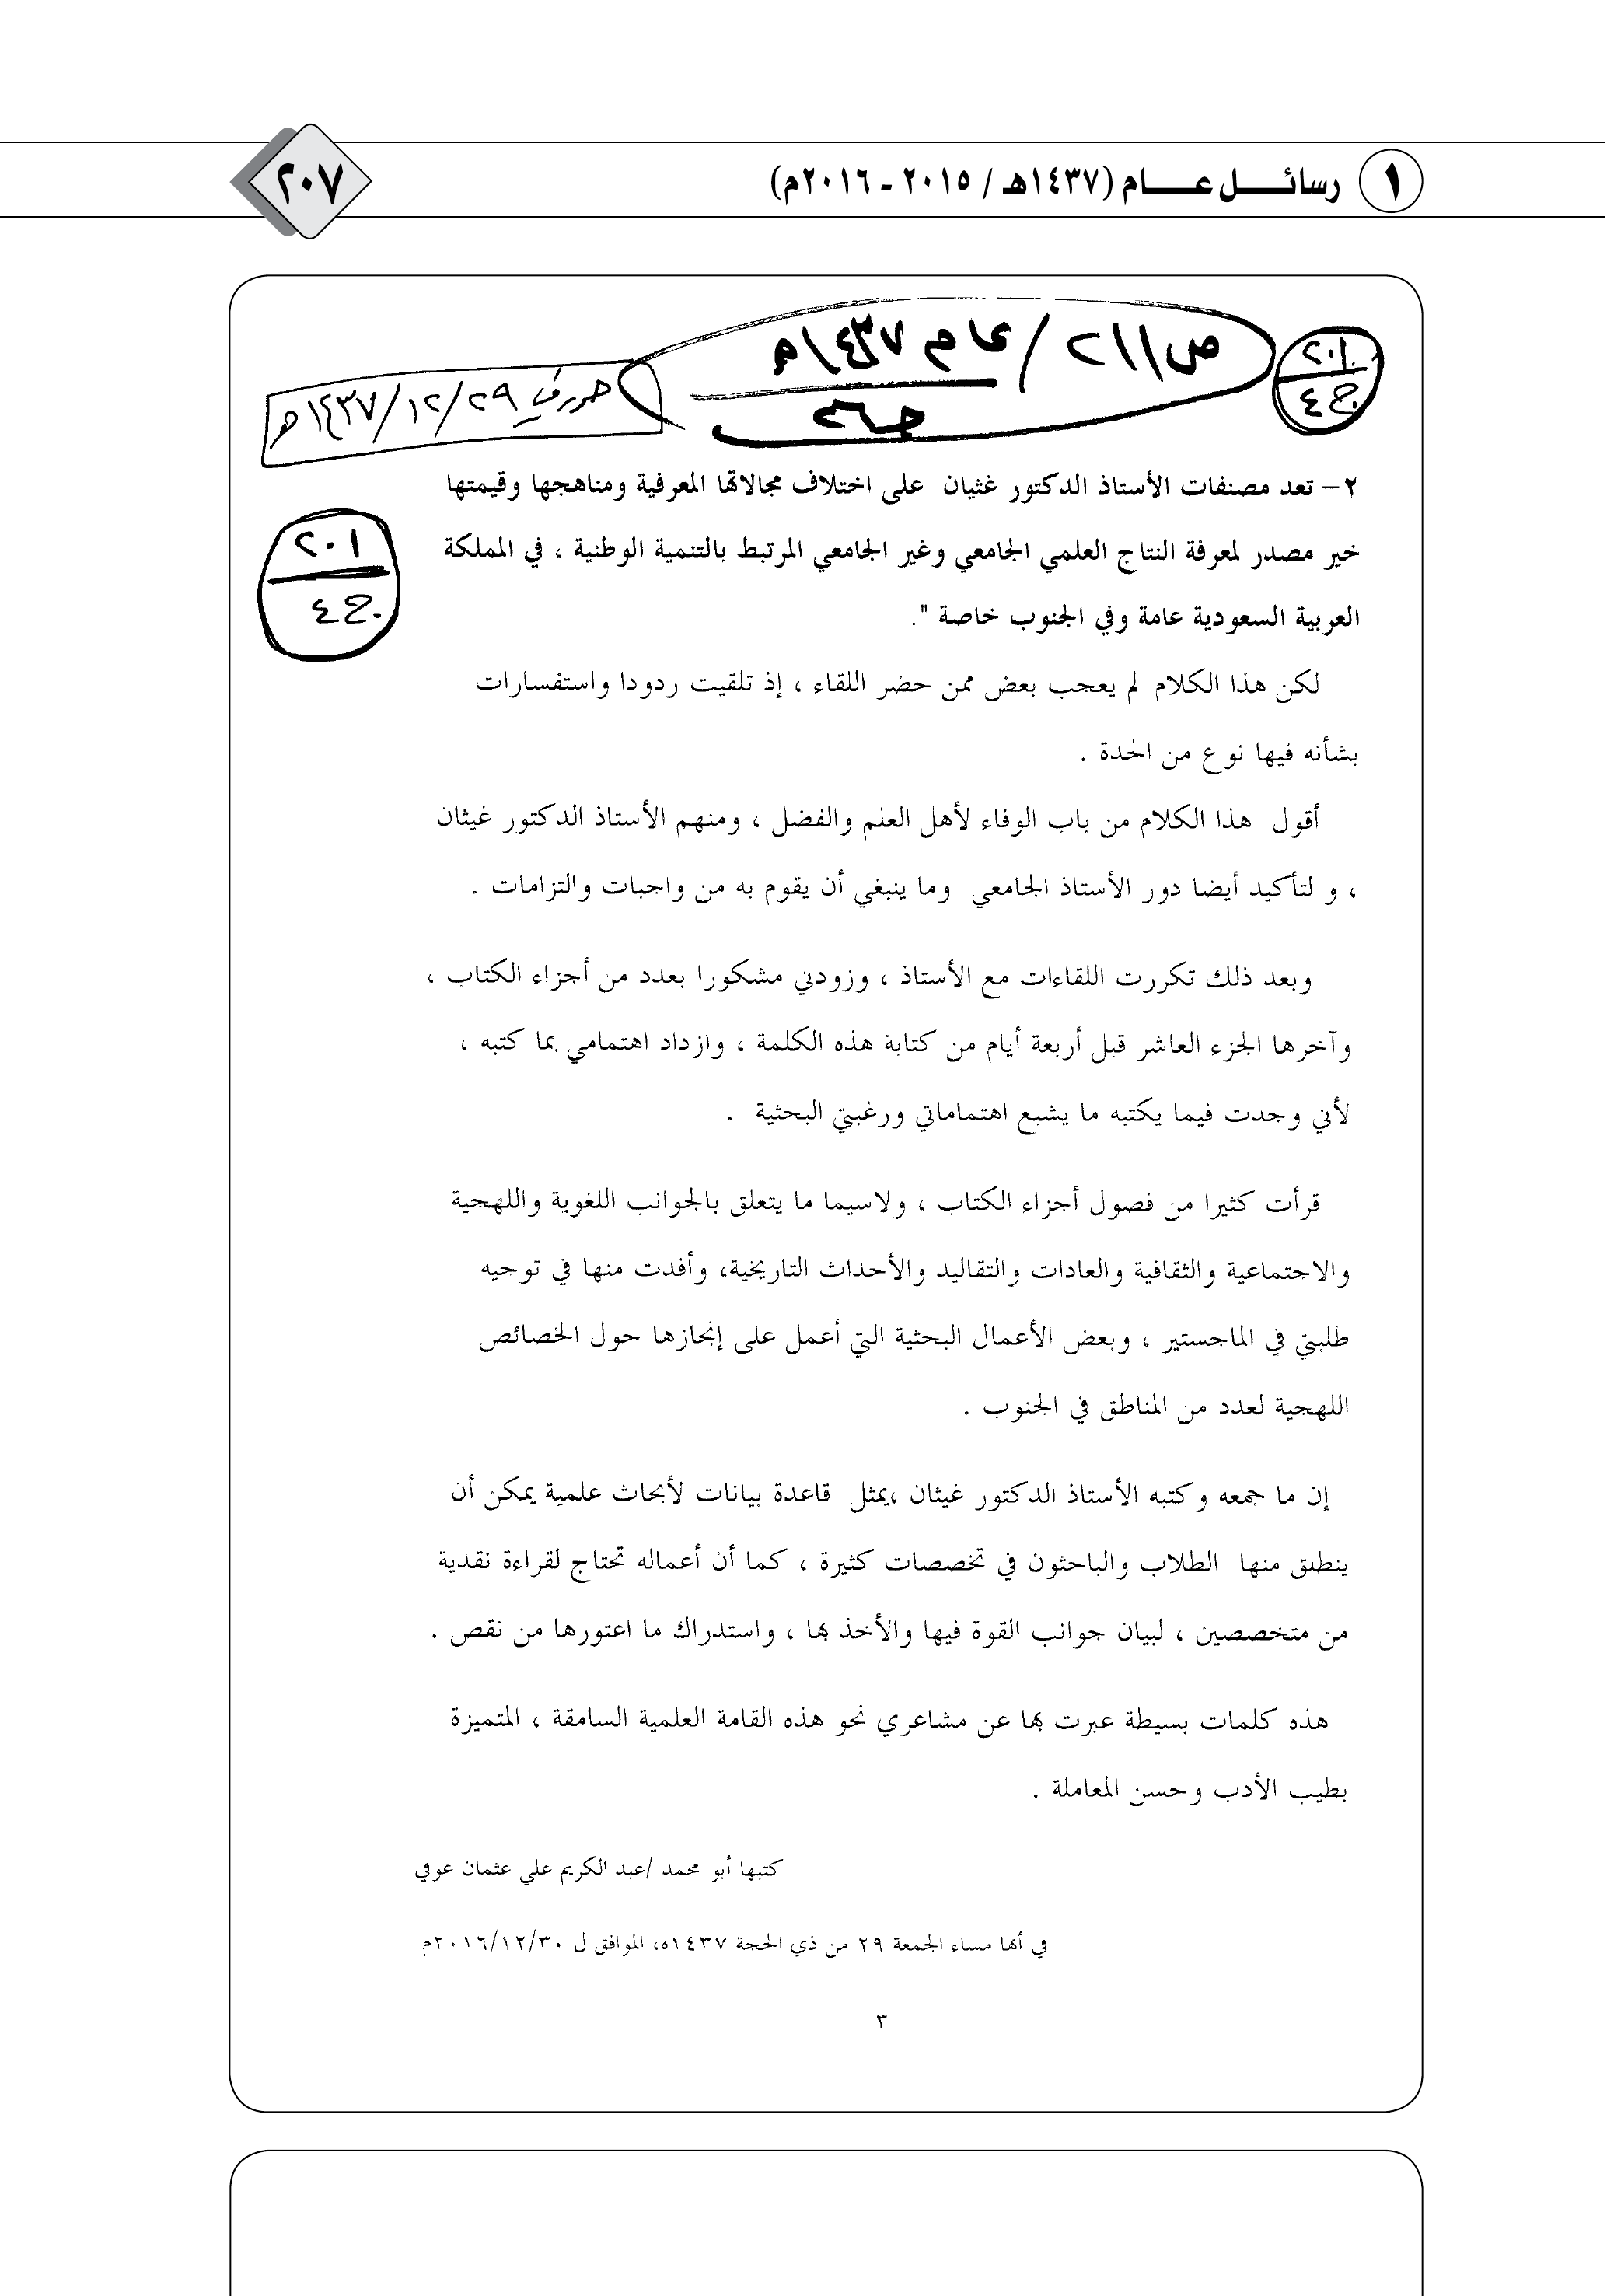 ١ رسائـــــل عـــــام (١٤٣٧هـ / ٢٠١٥ - ٢٠١٦م)
٢٠٧
ص٢١١ / عام ١٤٣٧هـ
٢٠١
ج٤
في ٢٩/١٢/١٤٣٧هـ
٢- تعد مصنفات الأستاذ الدكتور غثيان على اختلاف مجالاتها المعرفية ومناهجها وقيمتها
خير مصدر لمعرفة النتاج العلمي الجامعي وغير الجامعي المرتبط بالتنمية الوطنية ، في المملكة
العربية السعودية عامة وفي الجنوب خاصة ".
٢٠١
ج٤
لكن هذا الكلام لم يعجب بعض ممن حضر اللقاء ، إذ تلقيت ردودا واستفسارات
بشأنه فيها نوع من الحدة .
أقول هذا الكلام من باب الوفاء لأهل العلم والفضل ، ومنهم الأستاذ الدكتور غيثان
، و لتأكيد أيضا دور الأستاذ الجامعي وما ينبغي أن يقوم به من واجبات والتزامات .
وبعد ذلك تكررت اللقاءات مع الأستاذ ، وزودني مشكورا بعدد من أجزاء الكتاب ،
وآخرها الجزء العاشر قبل أربعة أيام من كتابة هذه الكلمة ، وازداد اهتمامي بما كتبه ،
لأني وجدت فيما يكتبه ما يشبع اهتماماتي ورغبتي البحثية .
قرأت كثيرا من فصول أجزاء الكتاب ، ولاسيما ما يتعلق بالجوانب اللغوية واللهجية
والاجتماعية والثقافية والعادات والتقاليد والأحداث التاريخية، وأفدت منها في توجيه
طلبتي في الماجستير ، وبعض الأعمال البحثية التي أعمل على إنجازها حول الخصائص
اللهجية لعدد من المناطق في الجنوب .
إن ما جمعه وكتبه الأستاذ الدكتور غيثان ،يمثل قاعدة بيانات لأبحاث علمية يمكن أن
ينطلق منها الطلاب والباحثون في تخصصات كثيرة ، كما أن أعماله تحتاج لقراءة نقدية
من متخصصين ، لبيان جوانب القوة فيها والأخذ بها ، واستدراك ما اعتورها من نقص .
هذه كلمات بسيطة عبرت بها عن مشاعري نحو هذه القامة العلمية السامقة ، المتميزة
بطيب الأدب وحسن المعاملة .
كتبها أبو محمد /عبد الكريم علي عثمان عوفي
في أبها مساء الجمعة ٢٩ من ذي الحجة ١٤٣٧ه، الموافق ل ٢٠١٦/١٢/٣٠م
٣